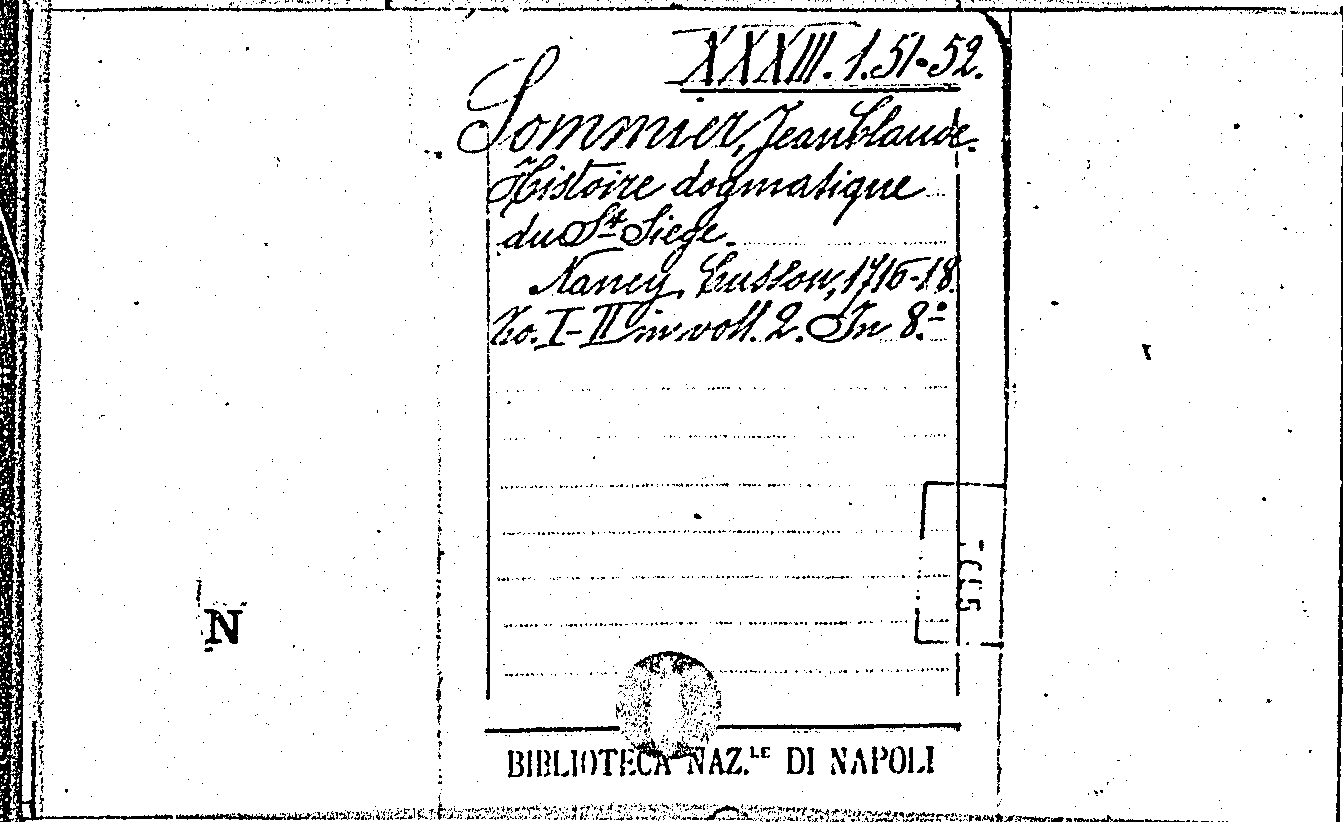 XXXIII. 1.51-52.
Sommier, Jean Claude.
Histoire dogmatique
du St Siege.
Nancy, Cusson, 1716-18.
To. I-II in voll. 2. In 8.º
N
BIBLIOTECA NAZ.LE DI NAPOLI